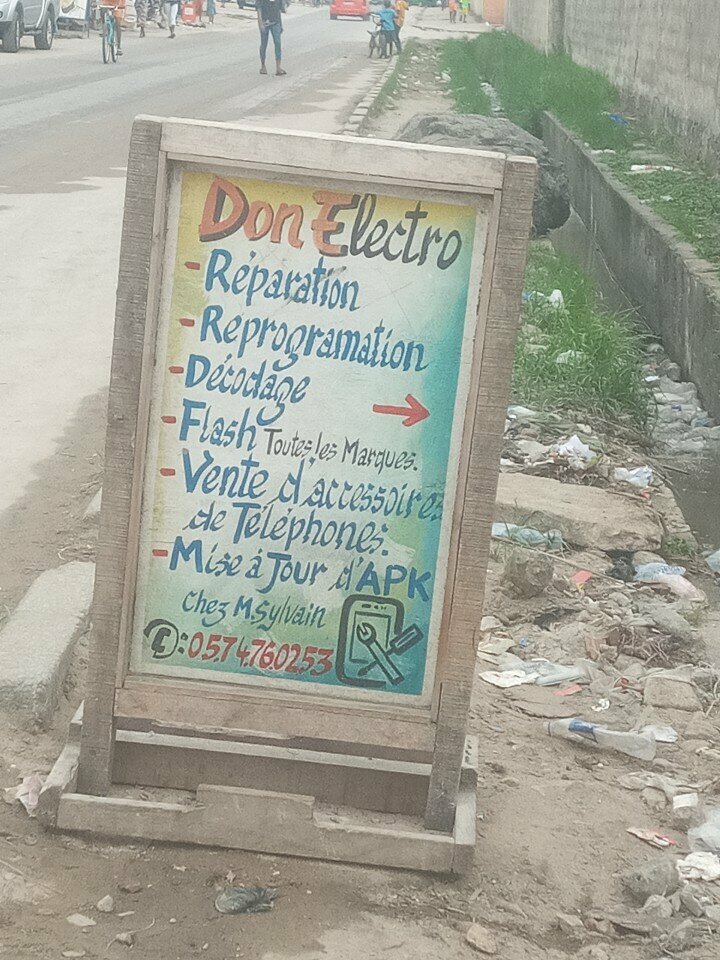 Don Electro
- Réparation
- Réprogramation
- Décodage
- Flash Toutes les Marques.
- Vente d'accessoires
de Téléphones.
- Mise à Jour d'APK
Chez M.Sylvain
: 05.74.76.02.53